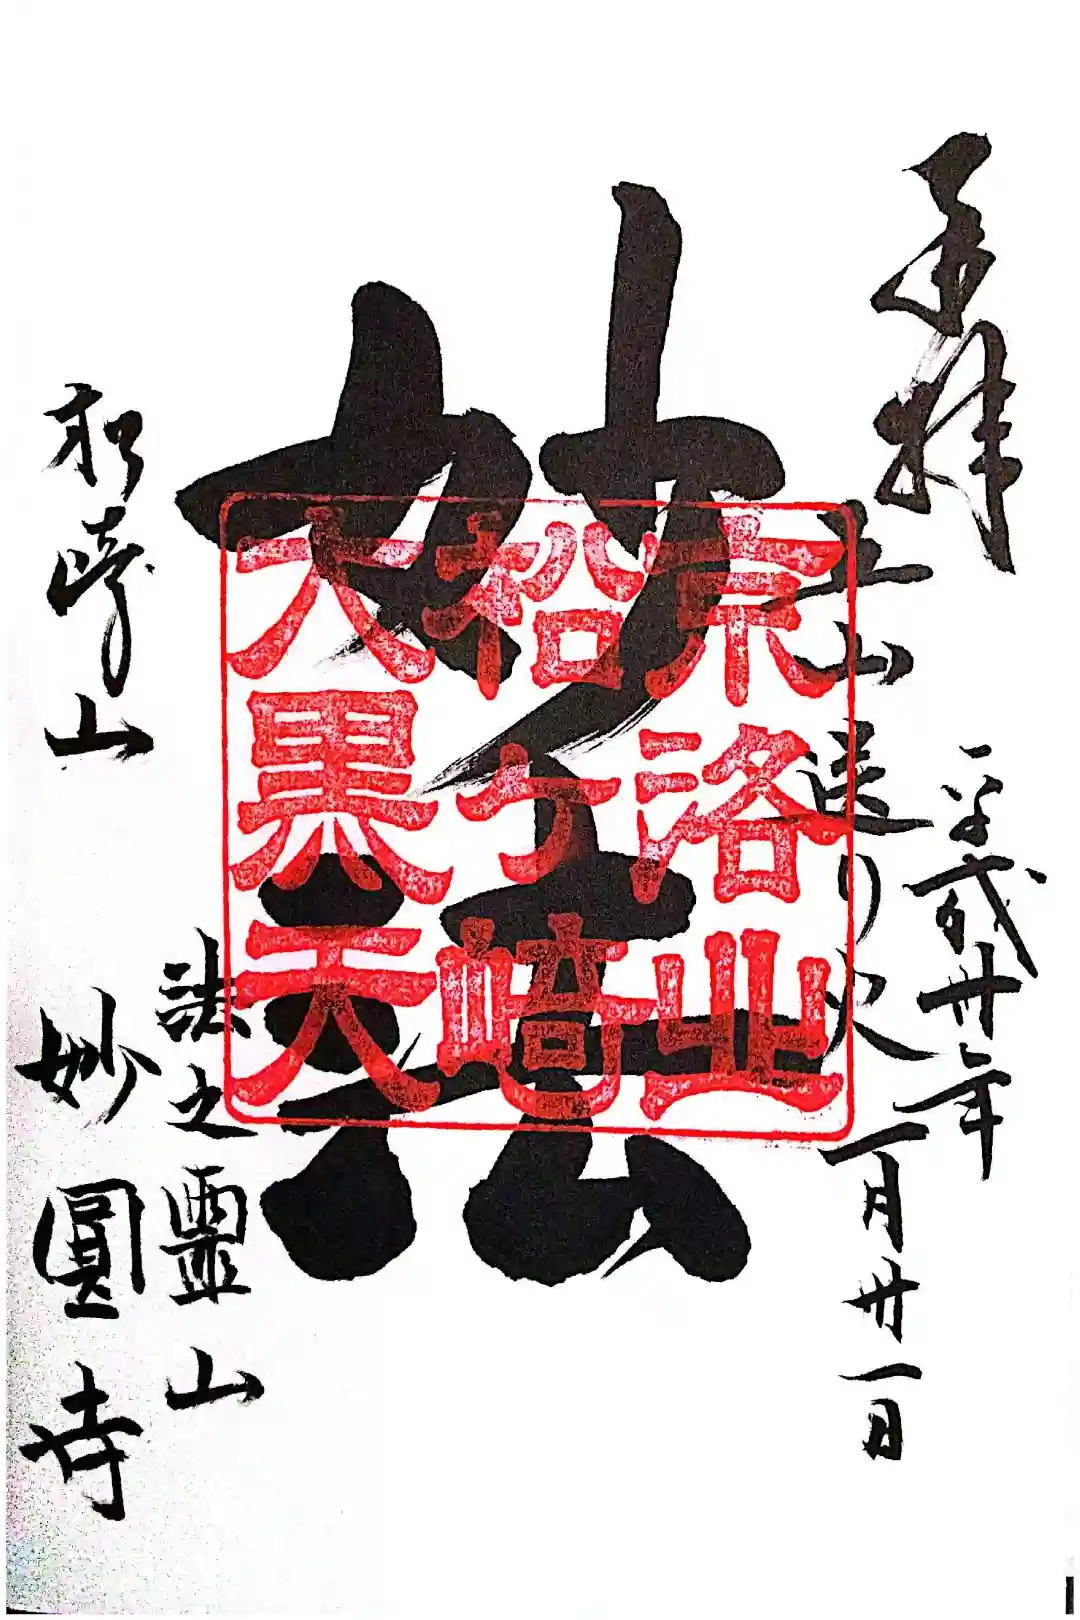 奉拝
五山送り火
平成廿年
一月廿一日
妙法
京洛北
柗ヶ崎
大黒天
法之霊山
松崎山
妙圓寺